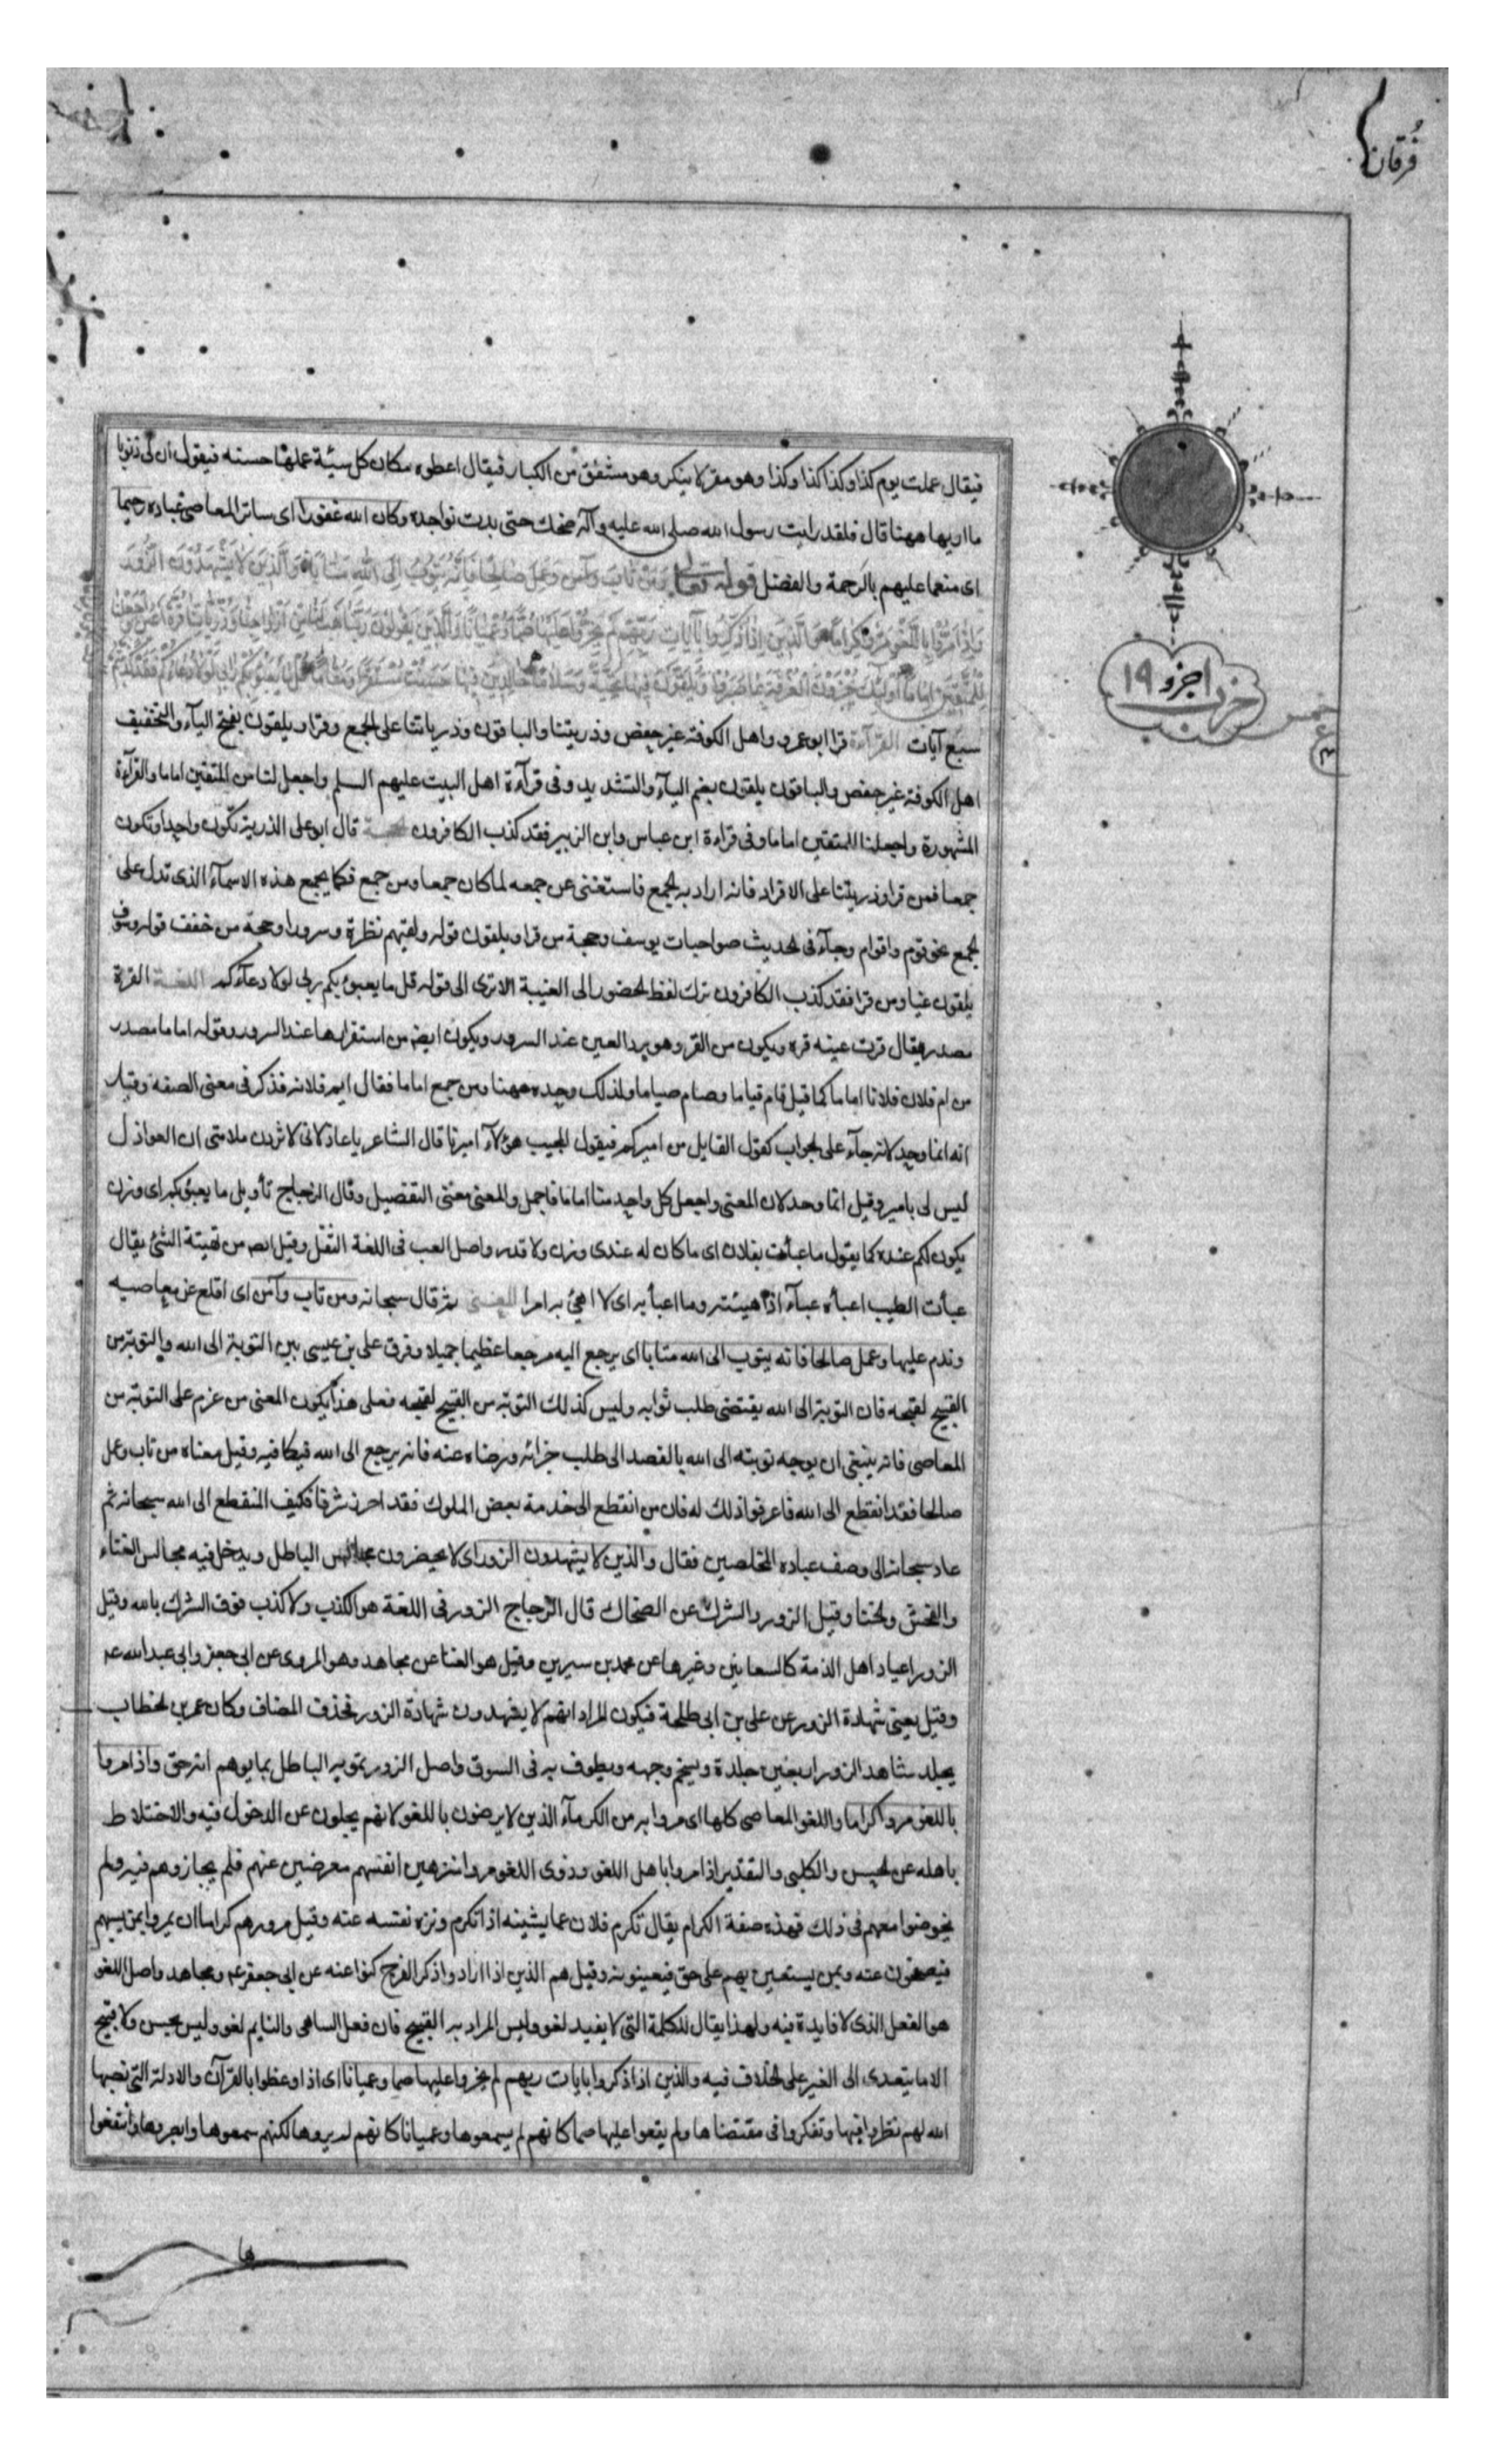 فرقان
فيقال عملت يوم كذا وكذا كذا وكذا وهو مقر لا ينكر وهو مشفق من الكبار فيقال اعطوه مكان كل سيئة عملها حسنه فيقول ان لى ذنوبا
ما اريها ههنا قال فلقد رايت رسول الله صلى الله عليه وآله ضحك حتى بدت نواجده وكان الله غفورا اى ساتر المعاصى عباده رحيما
اى منعما عليهم بالرحمة والفضل قوله تعالى وَمَنْ تَابَ وآمن وَعَمِلَ صَالِحًا فَاِنَّهُ يَتُوبُ اِلَى اللهِ مَتَابًا وَالَّذِينَ لَا يَشْهَدُونَ الزُّورَ
وَاِذَا مَرُّوا بِاللَّغْوِ مَرُّوا كِرَامًا وَالَّذِينَ اِذَا ذُكِّرُوا بِآيَاتِ رَبِّهِمْ لَمْ يَخِرُّوا عَلَيْهَا صُمًّا وَعُمْيَانًا وَالَّذِينَ يَقُولُونَ رَبَّنَا هَبْ لَنَا مِنْ اَزْوَاجِنَا وَذُرِّيَّاتِنَا قُرَّةَ اَعْيُنٍ وَاجْعَلْنَا
لِلْمُتَّقِينَ اِمَامًا اُولَئِكَ يُجْزَوْنَ الْغُرْفَةَ بِمَا صَبَرُوا وَيُلَقَّوْنَ فِيهَا تَحِيَّةً وَسَلَامًا خَالِدِينَ فِيهَا حَسُنَتْ مُسْتَقَرًّا وَمُقَامًا قُلْ مَا يَعْبَؤُ بِكُمْ رَبِّي لَوْلَا دُعَاؤُكُمْ فَقَدْ كَذَّبْتُمْ
اجزو ١٩
حزب
سبع آيات القرآءة قرا ابو عمرو واهل الكوفة غير حفص وذريتنا والباقون وذرياتنا على الجمع وقرا ويلقون بفتح اليآء والتخفيف
اهل الكوفة غير حفص والباقون يلقون بضم اليآء والتشديد وفى قرآءة اهل البيت عليهم السلم واجعل لنا من المتقين اماما والقرآءة
المشهورة واجعلنا للمتقين اماما وفى قراءة ابن عباس وابن الزبير فقد كذب الكافرون الحجة قال ابو على الذرية تكون واحدا وتكون
جمعا فمن قرا وذريتنا على الافراد فانه اراد به الجمع فاستغنى عن جمعه لما كان جمعا ومن جمع فكما يجمع هذه الاسمآء الذى تدل على
الجمع نحو قوم واقوام وجآء فى الحديث صواحبات يوسف وحجة من قرا ويلقون قوله ولقيهم نظرة وسرورا وحجة من خفف قوله وسوف
يلقون غيا ومن قرا فقد كذب الكافرون ترك لفظ الحضور الى الغيبة الاترى الى قوله قل ما يعبؤ بكم ربى لولا دعآؤكم اللغة القرة
مصدر يقال قرت عينه قره ويكون من القر وهو برد العين عند السرور ويكون ايضا من استقرارها عند السرور وقوله اماما مصدر
من ام فلان فلانا اماما كما قيل قام قياما وصام صياما ولذلك وحده ههنا ومن جمع اماما فقال ايمه فلانه قد كثر فى معنى الصفة وقيل
انه انما وحد لانه جآء على الجواب كقول القايل من اميركم فيقول المجيب هؤلآء اميرنا قال الشاعر يا عاذلاتى لا تزدن ملامتى ان العواذل
ليس لى بامير وقيل انما وحد لان المعنى واجعل كل واحد منا اماما فاجمل والمعنى معنى التفصيل وقال الزجاج تأويل ما يعبؤ بكم اى وزن
يكون لكم عنده كما يقول ما عبأت بفلان اى ما كان له عندى وزن ولا قدر واصل العب فى اللغة الثقل وقيل اصله من تهيئة الشئ يقال
عبأت الطيب اعبأه عبآء اذا هيئته وما اعبأ به اى لا اهئ به امرا المعنى ثم قال سبحانه ومن تاب وآمن اى اقلع عن معاصيه
وندم عليها وعمل صالحا فانه يتوب الى الله متابا اى يرجع اليه مرجعا عظيما جميلا وفرق على بن عيسى بين التوبة الى الله والتوبة من
القبيح لقبحه فان التوبة الى الله يقتضى طلب ثوابه وليس كذلك التوبة من القبيح لقبحه فعلى هذا يكون المعنى من عزم على التوبة من
المعاصى فانه ينبغى ان يوجه توبته الى الله بالقصد الى طلب جزائه ورضاه عنه فانه يرجع الى الله فيكافيه وقيل معناه من تاب وعمل
صالحا فقد انقطع الى الله فاعرفوا ذلك له فان من انقطع الى خدمة بعض الملوك فقد احرز شرفا فكيف المنقطع الى الله سبحانه ثم
عاد سبحانه الى وصف عباده المخلصين فقال والذين لا يشهدون الزور اى لا يحضرون مجالس الباطل ويدخل فيه مجالس الغناء
والفحش والخنا وقيل الزور الشرك عن الضحاك قال الزجاج الزور فى اللغة هو الكذب ولا كذب فوق الشرك بالله وقيل
الزور اعياد اهل الذمة كالسعانين وغيرها عن محمد بن سيرين وقيل هو الغنا عن مجاهد وهو المروى عن ابى جعفر وابى عبد الله عه
وقيل يعنى شهادة الزور عن على بن ابى طلحة فيكون المراد انهم لا يشهدون شهادة الزور فحذف المضاف وكان عمر بن الخطاب
يجلد شاهد الزور اربعين جلدة ويسخم وجهه ويطوف به فى السوق واصل الزور تمويه الباطل بما يوهم انه حق واذا مروا
باللغو مروا كراما واللغو المعاصى كلها اى مروا به من الكرمآء الذين لا يرضون باللغو لانهم يجلون عن الدخول فيه والاختلاط
باهله عن الحسن والكلبى والتقدير اذا مروا باهل اللغو وذوى اللغو مروا منزهين انفسهم معرضين عنهم فلم يجازوهم فيه ولم
يخوضوا معهم فى ذلك فهذه صفة الكرام يقال تكرم فلان عما يشينه اذا تكرم ونزه نفسه عنه وقيل مرورهم كراما ان يمروا بمن يسبهم
فيصفحون عنه وبمن يستعين بهم على حق فيعينونه وقيل هم الذين اذا ارادوا ذكر الفرج كنوا عنه عن ابى جعفر عه ومجاهد واصل اللغو
هو الفعل الذى لا فايدة فيه ولهذا يقال للكلمة التى لا يفيد لغو وليس المراد به القبيح فان فعل الساهى والنايم لغو وليس بحسن ولا قبيح
الا ما يتعدى الى الغير على الخلاف فيه والذين اذا ذكروا بايات ربهم لم يخروا عليها صما وعميانا اى اذا وعظوا بالقرآن والادلة التى نصبها
الله لهم نظروا فيها وتفكروا فى مقتضاها ولم يقعوا عليها صما كانهم لم يسمعوها وعميانا كانهم لم يروها لكنهم سمعوها وابصروها وانتفعوا
ها